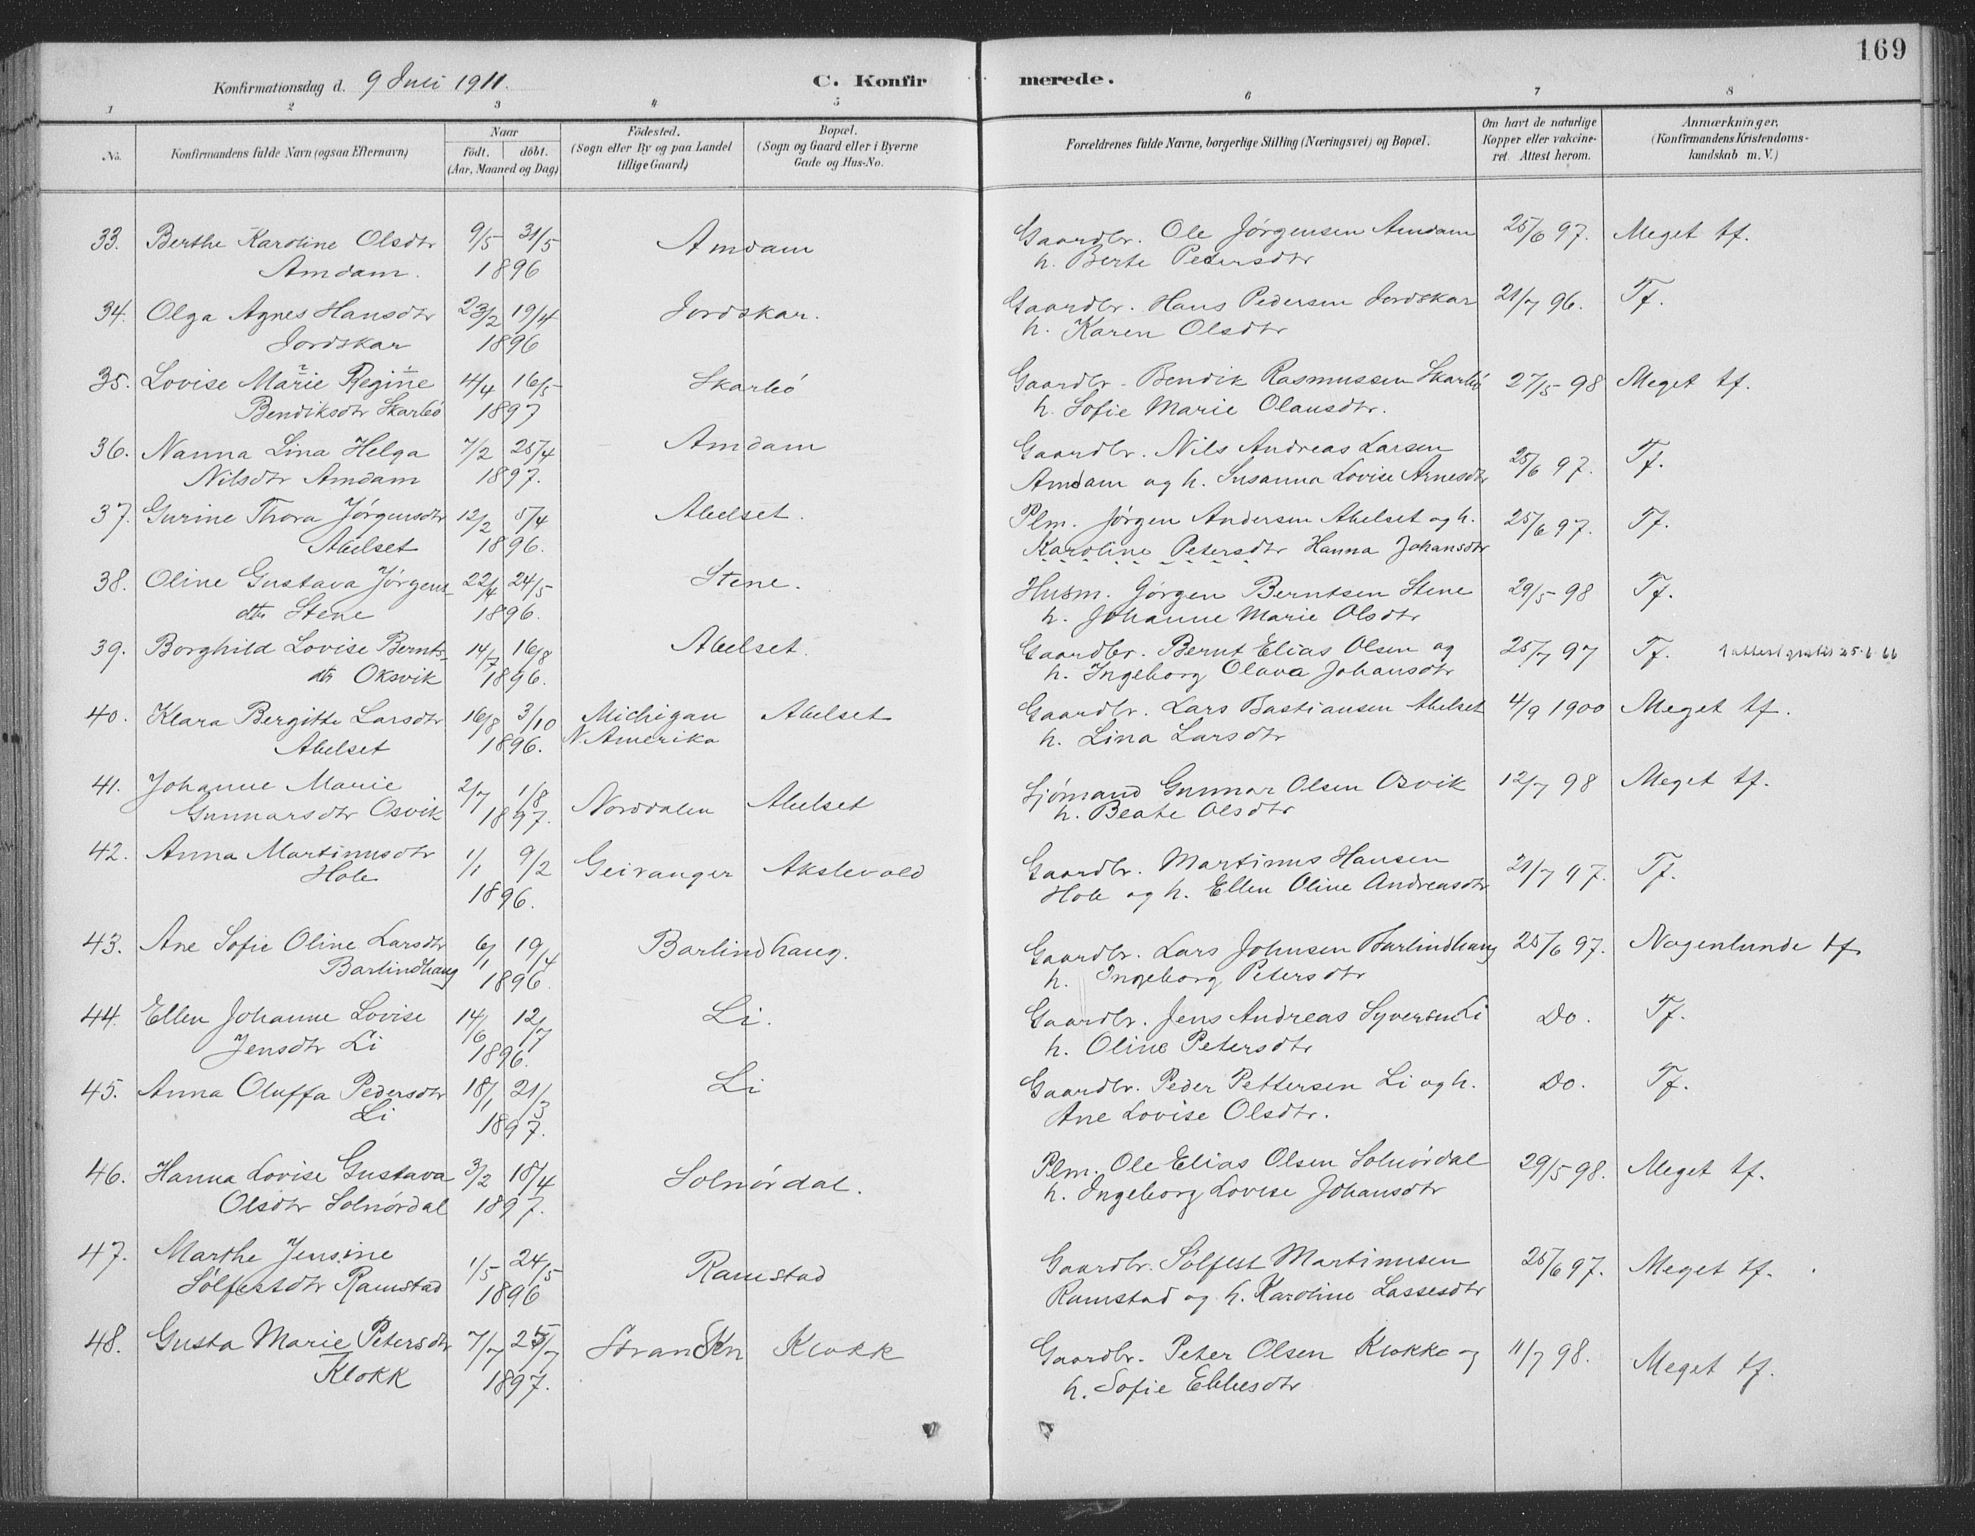 169
Konfirmationsdag d. 9 Juli 1911. C. Konfirmerede.
1 2 3 4 5 6 7 8
No. Konfirmandens fulde Navn (ogsaa Efternavn) Naar födt. döbt. (Aar, Maaned og Dag) Födested. (Sogn eller By og paa Landet tillige Gaard) Bopæl. (Sogn og Gaard eller i Byerne Gade og Hus-No. Forældrenes fulde Navne, borgerlige Stilling (Næringsvei) og Bopæl. Om havt de naturlige Kopper eller vakcineret. Attest herom. Anmærkninger. (Konfirmandens Kristendomskundskab m. V.)
33. Berthe Karoline Olsdtr 9/5 31/5 Amdam Gaardbr. Ole Jørgensen Amdam 25/6 97. Meget tf.
Amdam. 1896 h. Berte Petersdtr
34. Olga Agnes Hansdtr 23/2 19/4 Jordskar. Gaardbr. Hans Pedersen Jordskar 21/7 96. Tf.
Jordskar 1896 h. Karen Olsdtr
35. Lovise Marie Regine 4/4 16/5 Skarbö Gaardbr. Bendik Rasmussen Skarbö 27/5 98 Meget tf.
Bendiksdtr Skarbö 1897 h. Sofie Marie Olausdtr.
36. Nanna Lina Helga 7/2 25/4 Amdam Gaardbr. Nils Andreas Larsen 25/6 97. Tf.
Nilsdtr Amdam 1897. Amdam og h. Susanna Lovise Arnesdtr
37. Gurine Thora Jörgensdtr 12/2 5/4 Abelset. Plm. Jørgen Andersen Abelset og h. 25/6 97. Tf.
Abelset 1896. Karoline Petersdtr Hanna Johansdtr
38. Oline Gustava Jørgens- 22/4 24/5 Stene. Husm. Jörgen Berntsen Stene 29/5 98 Tf.
dtr Stene 1896. h. Johanne Marie Olsdtr
39. Borghild Lovise Bernts- 14/7 16/8 Abelset. Gaardbr. Bernt Elias Olsen og 25/7 97 Tf. 1 attest gratis 25.6.66
dtr Oksvik 1896. h. Ingeborg Olava Johansdtr
40. Klara Bergitte Larsdtr 16/8 3/10 Michigan Abelset Gaardbr. Lars Bastiansen Abelset 4/9 1900 Meget tf.
Abelset 1896. N. Amerika h. Lina Larsdtr
41. Johanne Marie 2/7 1/8 Norddalen Abelset Sjømand Gunnar Olsen Osvik 12/7 98 Meget tf.
Gunnarsdtr Osvik 1897. h. Beate Olsdtr
42. Anna Martinusdtr 1/1 9/2 Geiranger Akslevold Gaardbr. Martinus Hansen 21/7 97. Tf.
Hole 1896. Hole og h. Ellen Oline Andreasdtr
43. Ane Sofie Oline Larsdtr 6/1 19/4 Barlindhaug. Gaardbr. Lars Johnsen Barlindhaug 25/6 97. Nogenlunde tf
Barlindhaug 1896. h. Ingeborg Petersdtr
44. Ellen Johanne Lovise 14/6 12/7 Li. Gaardbr. Jens Andreas Syversen Li Do. Tf.
Jensdtr Li 1896. h. Oline Petersdtr
45. Anna Oluffa Pedersdtr 18/1 21/3 Li Gaardbr. Peder Pettersen Li og h. Do. Tf.
Li 1897. Ane Lovise Olsdtr.
46. Hanna Lovise Gustava 3/2 18/4 Solnørdal. Plm. Ole Elias Olsen Solnørdal 29/5 98. Meget tf.
Olsdtr Solnørdal 1897. h. Ingeborg Lovise Johansdtr
47. Marthe Jensine 1/5 24/5 Ramstad Gaardbr. Sølfest Martinusen 25/6 97. Meget tf.
Sølfestdtr Ramstad 1896 Ramstad og h. Karoline Lassesdtr
48. Gusta Marie Petersdtr 7/7 25/7 Klokk Gaardbr. Peter Olsen Klokke og 11/7 98. Meget tf.
Klokk 1897. h. Sofie Ebbesdtr